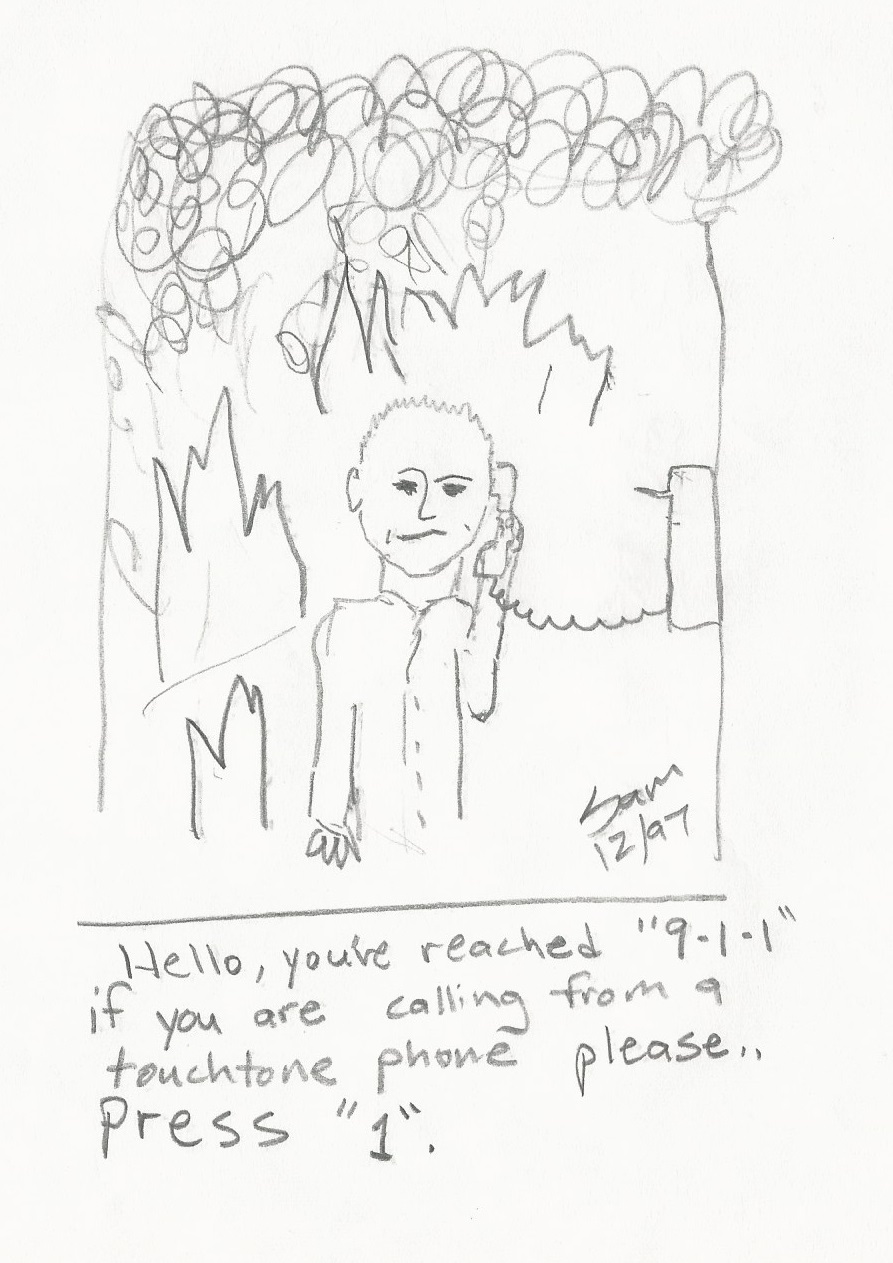 Sam
12/97
Hello, you've reached "9-1-1"
if you are calling from a
touchtone phone please..
Press "1".